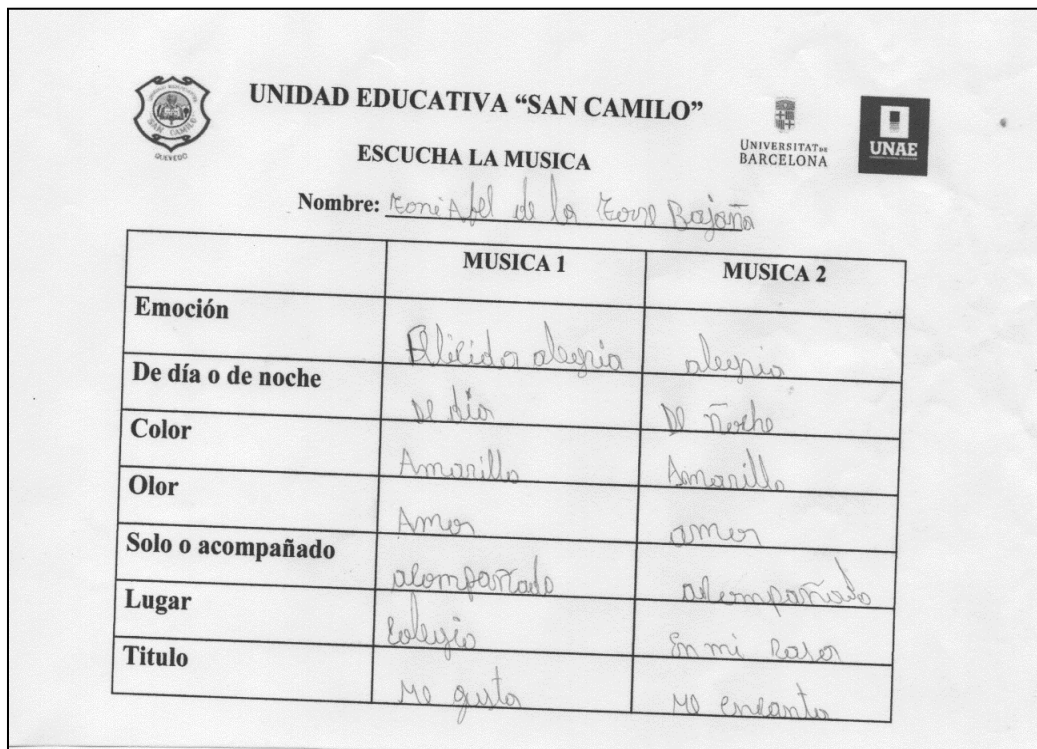 UNIDAD EDUCATIVA “SAN CAMILO”
SAN CAMILO
QUEVEDO
UNIVERSITAT DE
BARCELONA
UNAE
ESCUCHA LA MUSICA
Nombre: Abel de la Torre Bajaña
MUSICA 1 MUSICA 2
Emoción alegria alegria
De día o de noche De día De ñoche
Color Amarillo Amarillo
Olor Amor amor
Solo o acompañado acompañado acompañado
Lugar Colegio En mi casa
Titulo Me gusta Me encanta